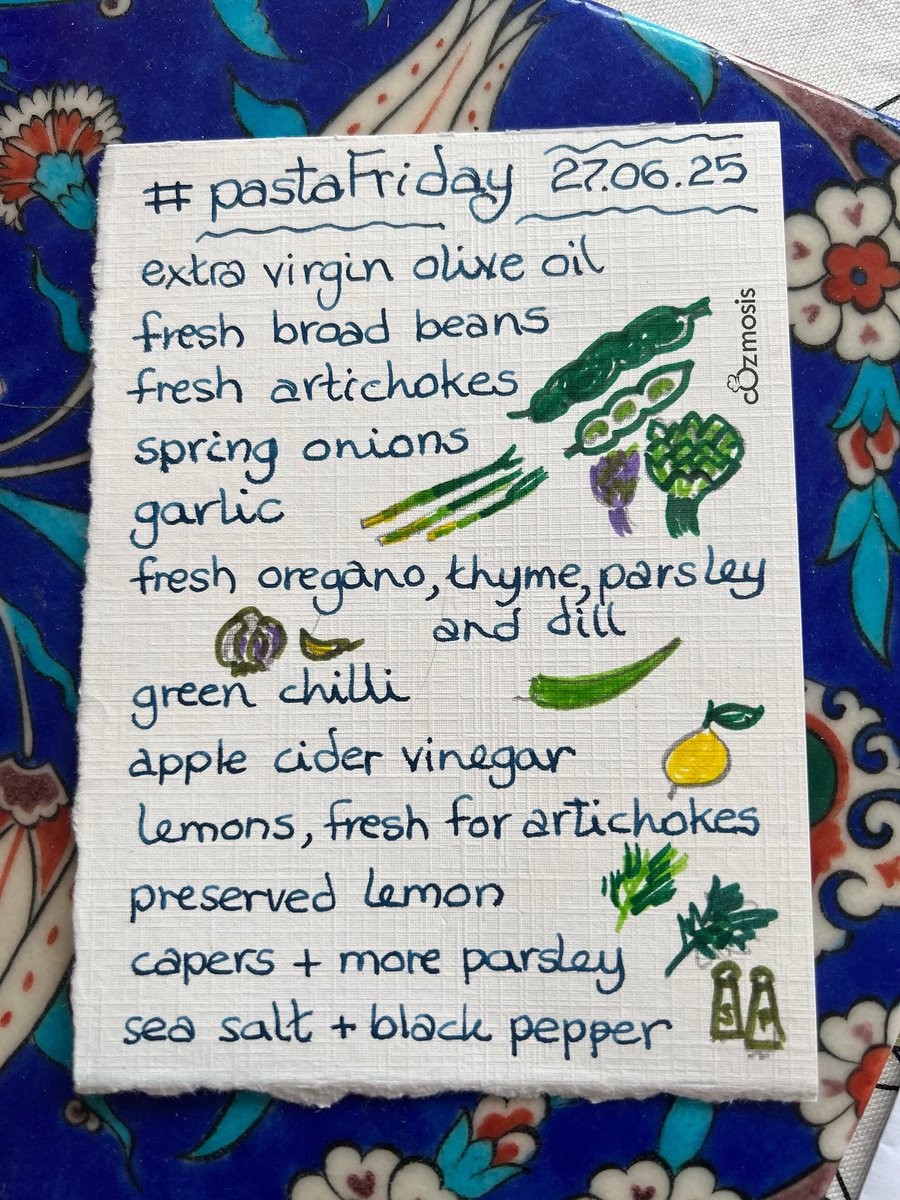 # pastaFriday 27.06.25
extra virgin olive oil
fresh broad beans
fresh artichokes
spring onions
garlic
fresh oregano, thyme, parsley
and dill
green chilli
apple cider vinegar
lemons, fresh for artichokes
preserved lemon
capers + more parsley
sea salt + black pepper
S P